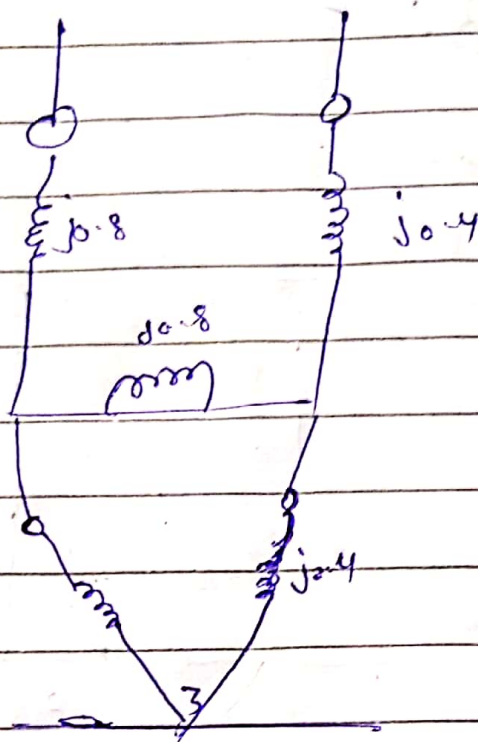 j0.8
j0.4
j0.8
j0.4
3